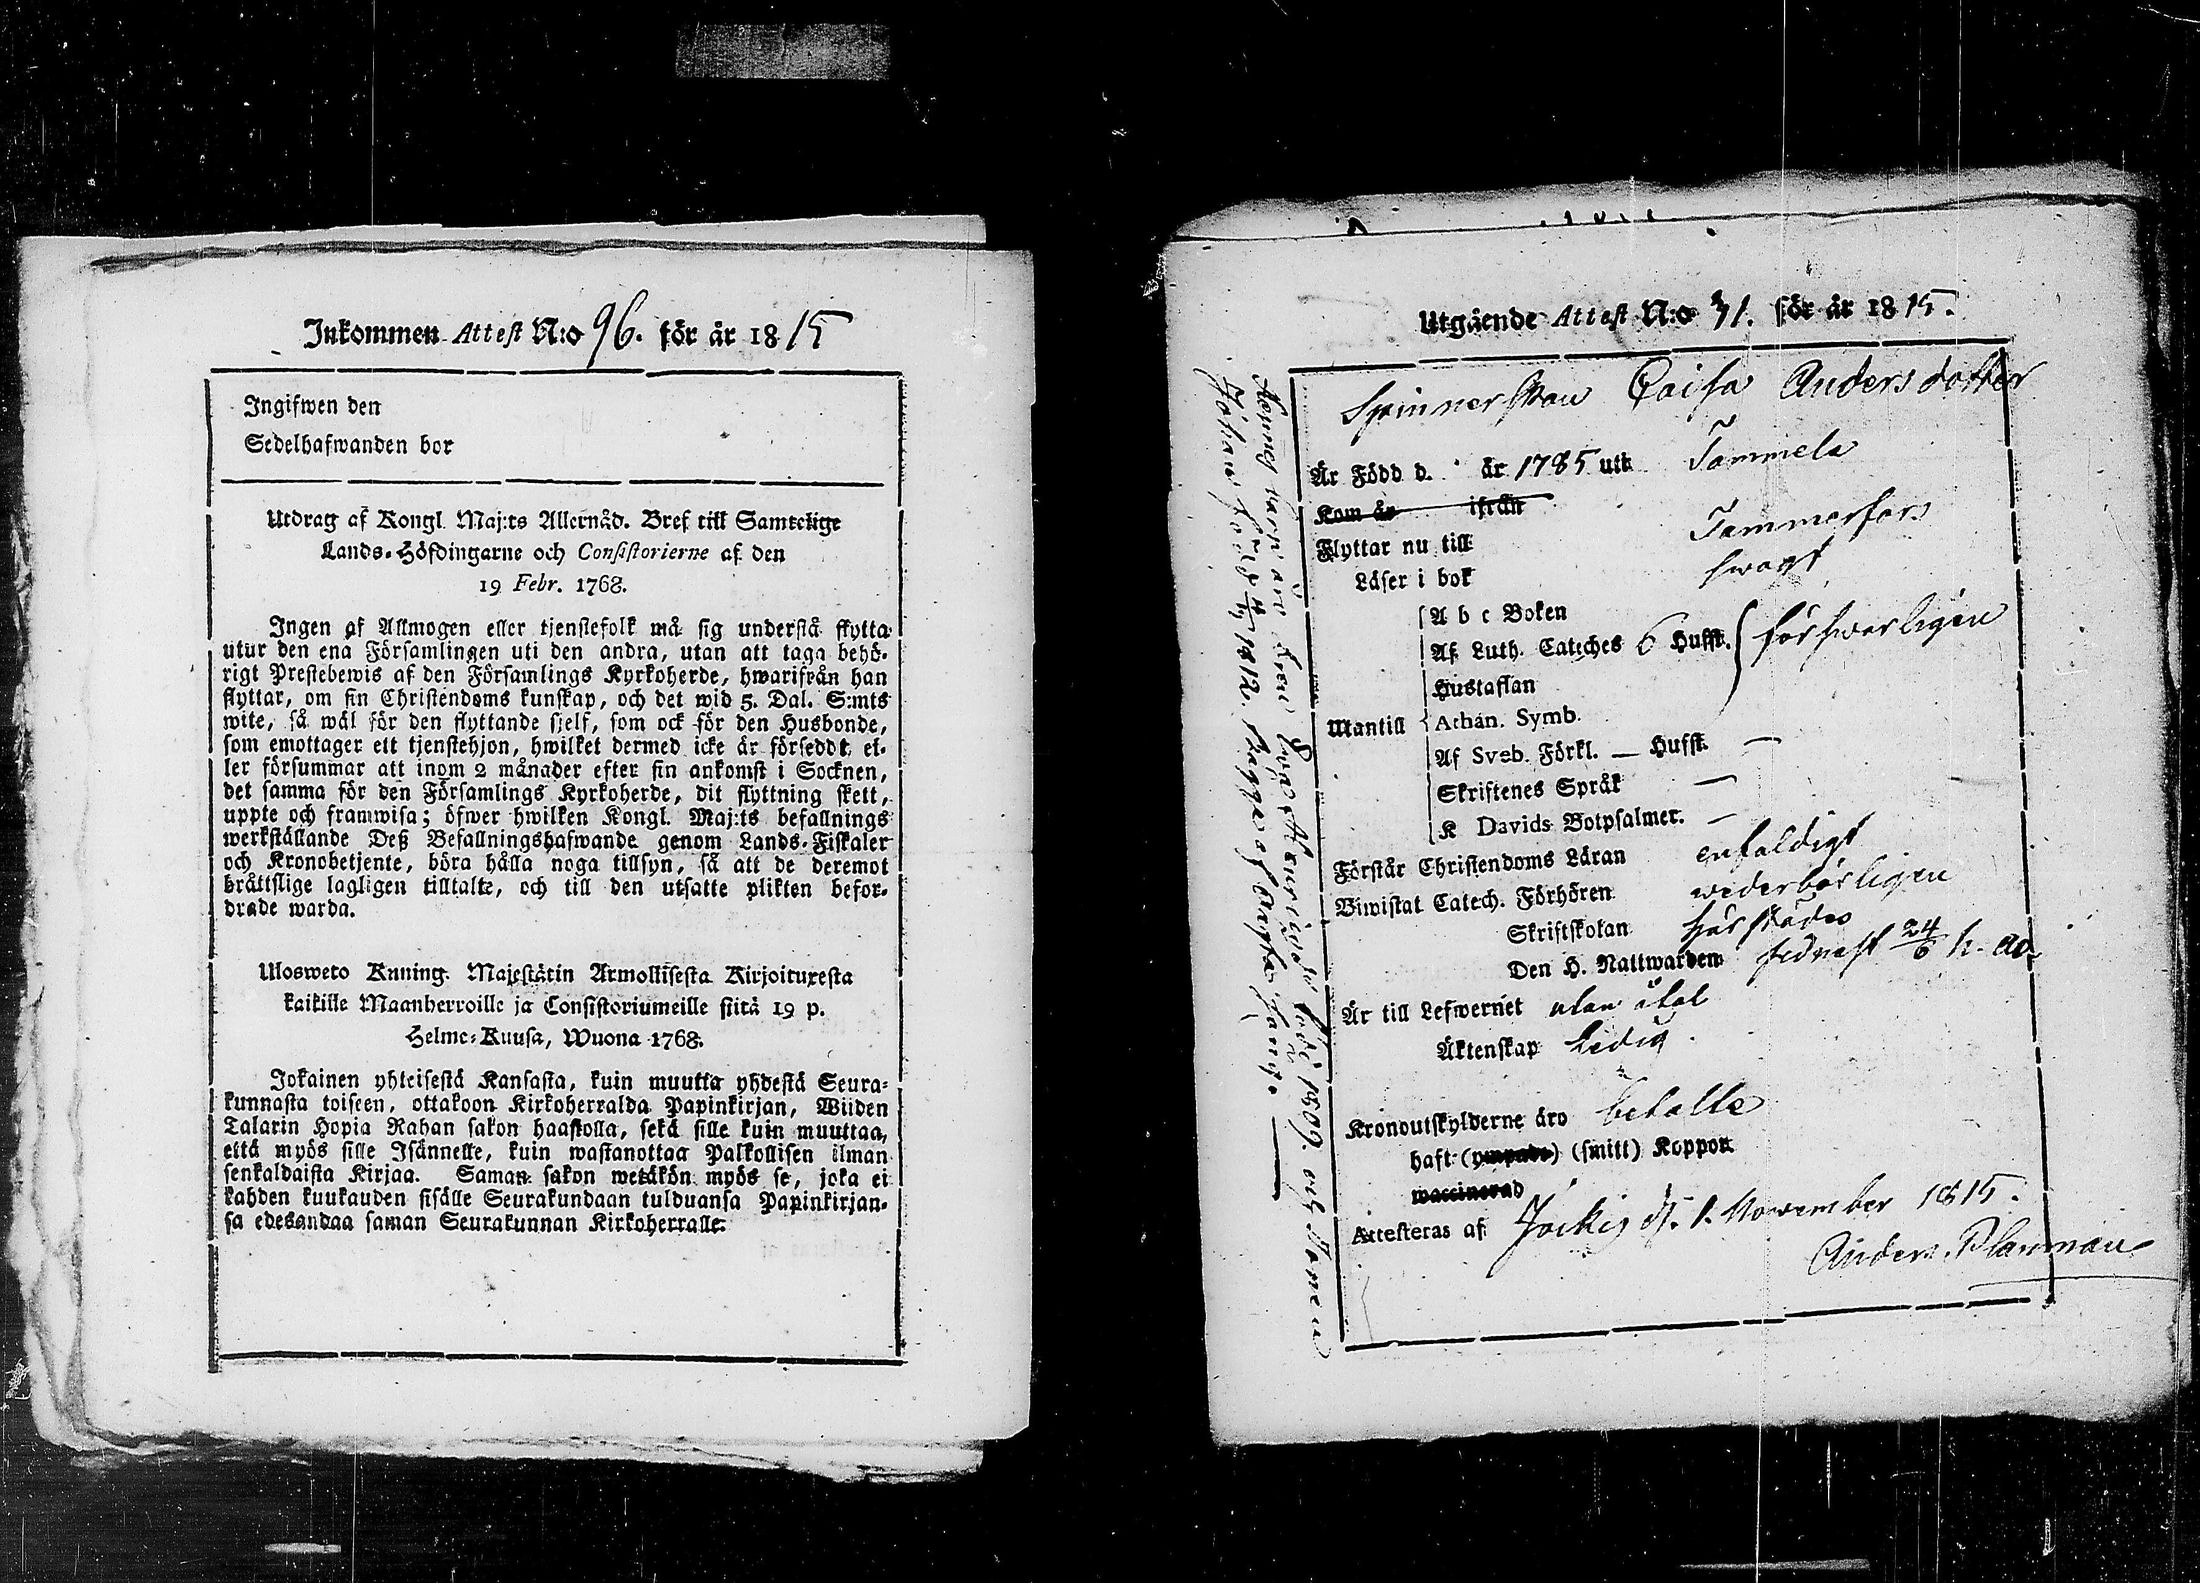 Inkommen Attest N:o 96. för år 1815
Ingifwen den
Sedelhafwanden bor
Utdrag af Kongl. Maj:ts Allernåd. Bref till Samtelige
Lands-Höfdingarne och Consistorierne af den
19 Febr. 1768.
Ingen af Allmogen eller tjenstefolk må sig understå flytta
utur den ena Församlingen uti den andra, utan att taga behö-
rigt Prestebewis af den Församlings Kyrkoherde, hwarifrån han
flyttar, om sin Christendoms kunskap, och det wid 5. Dal. S:mts
wite, så wäl för den flyttande sjelf, som ock för den Husbonde,
som emottager ett tjenstehjon, hwilket dermed icke är försedt, el-
ler försummar att inom 2 månader efter sin ankomst i Socknen,
det samma för den Församlings Kyrkoherde, dit flyttning skett,
uppte och framwisa; öfwer hwilken Kongl. Maj:ts befallnings
werkställande Deß Befallningshafwande genom Lands-Fiskaler
och Kronobetjente, böra hålla noga tillsyn, så att de deremot
bråttslige lagligen tilltalte, och till den utsatte plikten befor-
drade warda.
Ulosweto Kuning. Majestätin Armollisesta Kirjoituxesta
kaikille Maanherroille ja Consistoriumeille siitä 19 p.
Helme-Kuusa, Wuona 1768.
Jokainen yhteisestä Kansasta, kuin muutta yhdestä Seura-
kunnasta toiseen, ottakoon Kirkoherralda Papinkirjan, Wiiden
Talarin Hopia Rahan sakon haastolla, sekä sille kuin muuttaa,
että myös sille Isännelle, kuin wastanottaa Palkollisen ilman
senkaldaista Kirjaa. Saman sakon wetäkön myös se, joka ei
kahden kuukauden sisälle Seurakundaan tulduansa Papinkirjan-
sa edesandaa saman Seurakunnan Kirkoherralle.
Utgående Attest N:o 31. för år 1815.
Spinnerskan Caisa Andersdotter
Är Född d. år 1785 uti Tammela
Kom år ifrån
Flyttar nu till Tammerfors
Läser i bok swagt
A b c Boken
Af Luth. Cateches 6 Hufst. försvarligen
Hustaflan
Utantill Athan. Symb.
Af Sveb. Förkl. — Hufst. —
Skriftenes Språk —
K Davids Botpsalmer. —
Förstår Christendoms Läran enfaldigt
Biwistat Catech. Förhören wederbörligen
Skriftskolan härstädes
Den H. Nattwarden sednast 24/6 h. a.
Är till Lefwernet utan åtal
Äktenskap Ledig
Kronoutskylderne äro betalte
haft (ympade) (smitt) Koppor
waccinerad
Attesteras af Jockis d. 1. November 1815.
Anders Planman
Hennes barn äro: Henric född 1809. och Sonen
Johan född 1812.